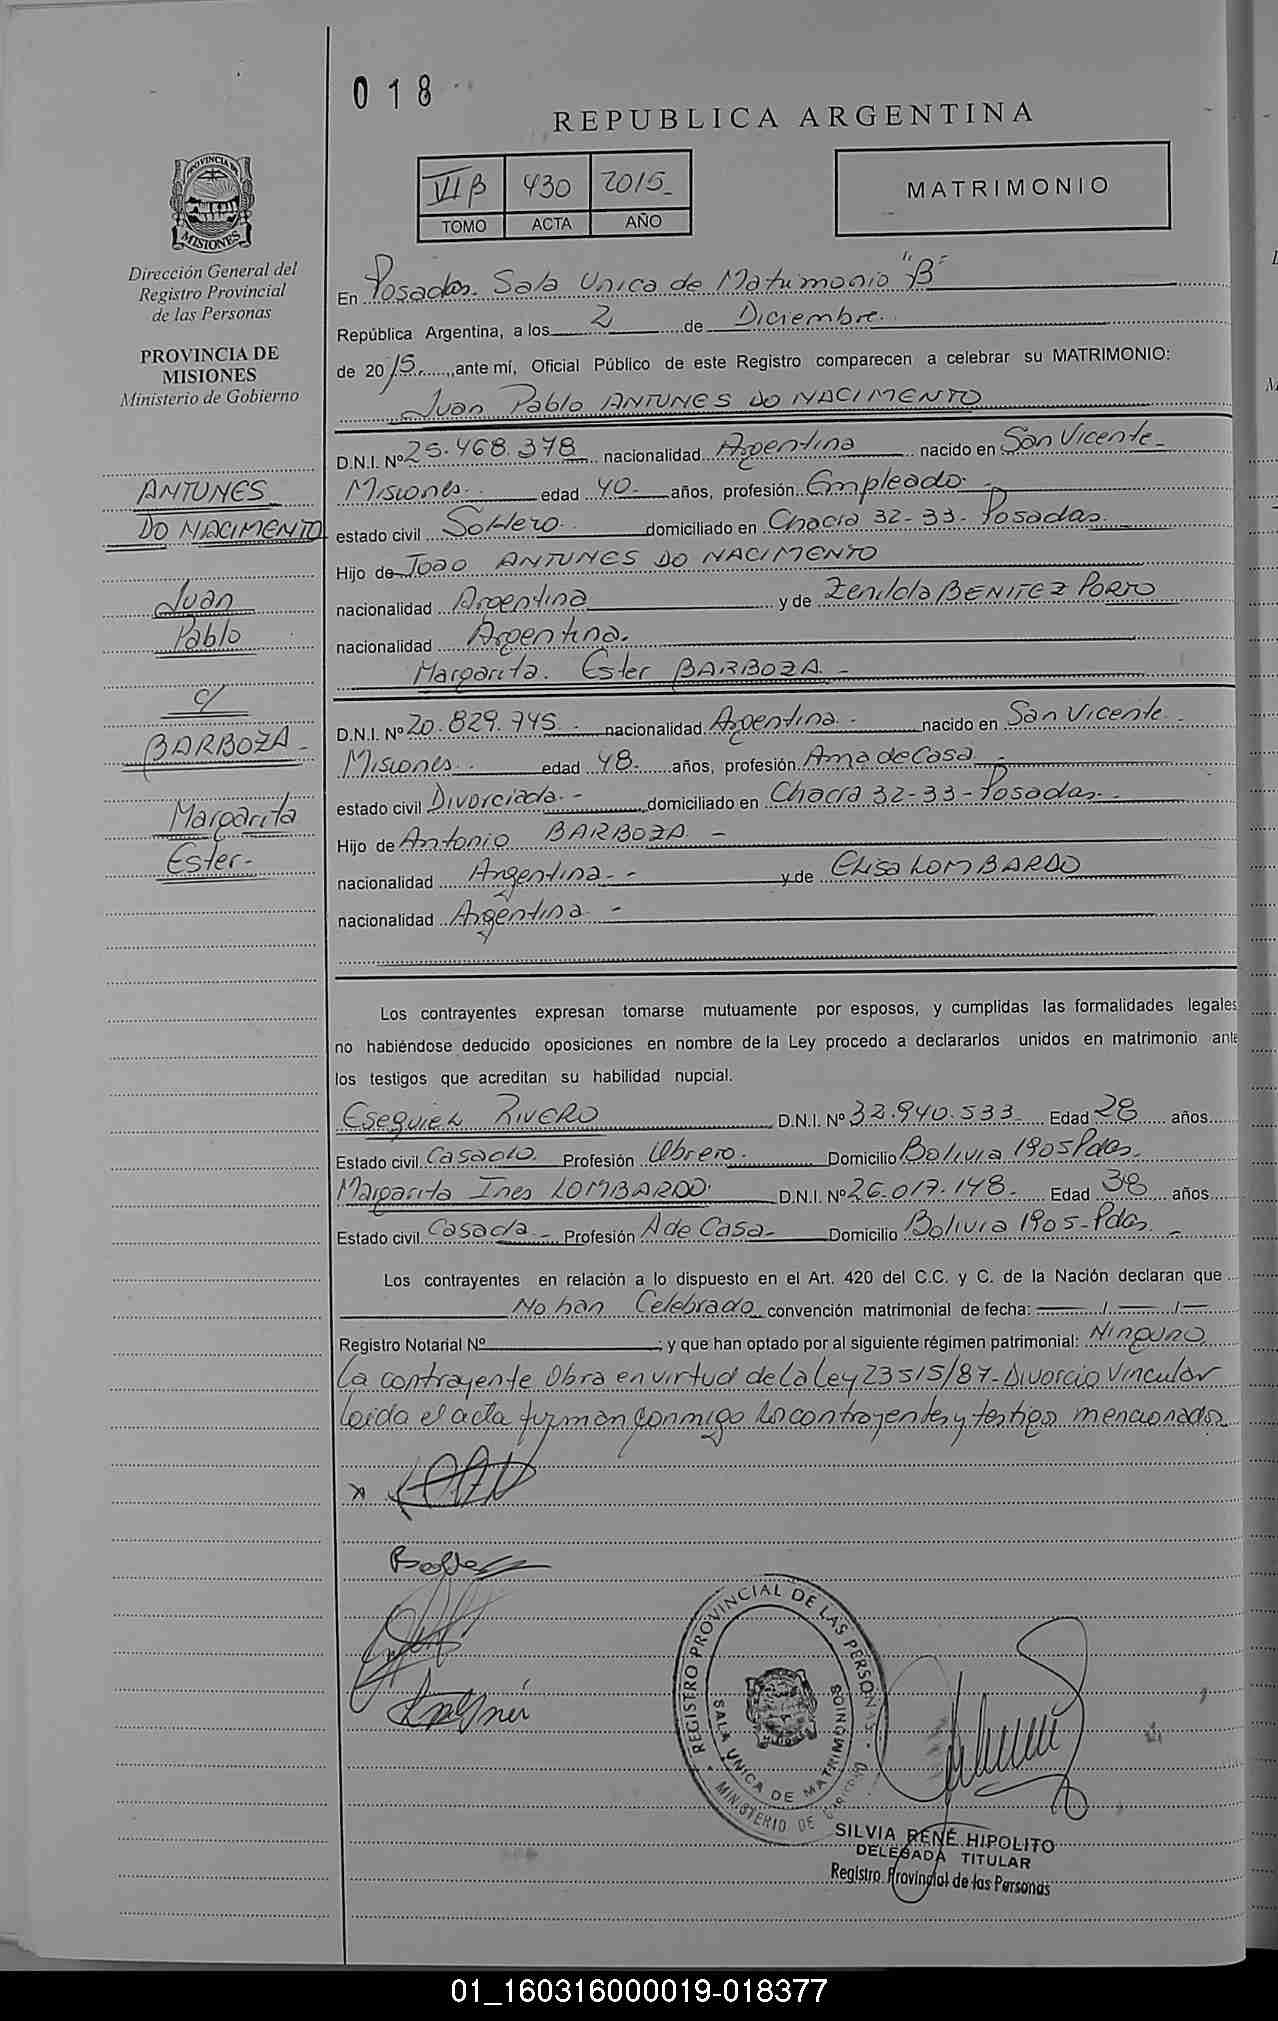 018
REPUBLICA ARGENTINA
VI B 430 2015
TOMO ACTA AÑO
MATRIMONIO
PROVINCIA DE
MISIONES
Dirección General del
Registro Provincial
de las Personas
PROVINCIA DE
MISIONES
Ministerio de Gobierno
ANTUNES
DO NACIMENTO
Juan
Pablo
c/
BARBOZA -
Margarita
Ester -
En Posadas. Sala Unica de Matrimonio "B"
República Argentina, a los 2 de Diciembre.
de 2015, ante mí, Oficial Público de este Registro comparecen a celebrar su MATRIMONIO:
Juan Pablo ANTUNES DO NACIMENTO
D.N.I. Nº 25.468.378 nacionalidad Argentina nacido en San Vicente -
Misiones. edad 40. años, profesión Empleado. -
estado civil Soltero. domiciliado en Chacra 32-33-Posadas.
Hijo de Joao ANTUNES DO NACIMENTO
nacionalidad Argentina y de Zenilda BENITEZ PORTO
nacionalidad Argentina.
Margarita. Ester BARBOZA -
D.N.I. Nº 20.829.745 - nacionalidad Argentina. - nacido en San Vicente -
Misiones. - edad 48. años, profesión Ama de Casa -
estado civil Divorciada. - domiciliado en Chacra 32-33-Posadas. -
Hijo de Antonio BARBOZA -
nacionalidad Argentina - - y de Elisa LOMBARDO
nacionalidad Argentina -
Los contrayentes expresan tomarse mutuamente por esposos, y cumplidas las formalidades legales
no habiéndose deducido oposiciones en nombre de la Ley procedo a declararlos unidos en matrimonio ante
los testigos que acreditan su habilidad nupcial.
Esequiel RIVERO D.N.I. Nº 32.940.533 Edad 28 años
Estado civil Casado Profesión Obrero. Domicilio Bolivia 1905 Pdas.
Margarita Ines LOMBARDO. D.N.I. Nº 26.017.148 - Edad 38 años
Estado civil Casada - Profesión A de Casa - Domicilio Bolivia 1905-Pdas. -
Los contrayentes en relación a lo dispuesto en el Art. 420 del C.C. y C. de la Nación declaran que
No han Celebrado convención matrimonial de fecha: / /
Registro Notarial Nº ; y que han optado por al siguiente régimen patrimonial: Ninguno
La contrayente Obra en virtud de la Ley 23515/87- Divorcio Vincular
Leida el acta firman conmigo los contrayentes y testigos mencionados
REGISTRO PROVINCIAL DE LAS PERSONAS
SALA UNICA DE MATRIMONIOS
MINISTERIO DE GOBIERNO
SILVIA RENÉ HIPOLITO
DELEGADA TITULAR
Registro Provincial de las Personas
01_160316000019-018377